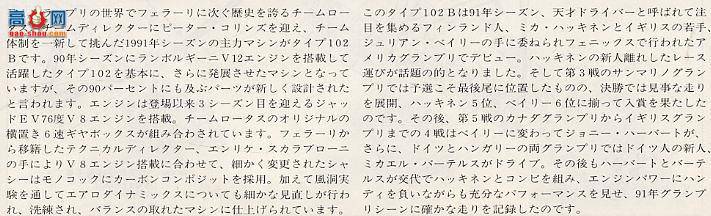 プリの世界でフェラーリに次ぐ歴史を誇るチームロー
ムディレクターにピーター・コリンズを迎え、チーム
体制を一新して挑んだ1991年シーズンの主力マシンがタイプ102
Bです。90年シーズンにランボルギーニV12エンジンを搭載して
活躍したタイプ102を基本に、さらに発展させたマシンとなって
いますが、その90パーセントにも及ぶパーツが新しく設計された
と言われます。エンジンは登場以来3シーズン目を迎えるジャッ
ドEV76度V8エンジンを搭載。チームロータスのオリジナルの
横置き6速ギヤボックスが組み合わされています。フェラーリか
ら移籍したテクニカルディレクター、エンリケ・スカラブローニ
の手によりV8エンジン搭載に合わせて、細かく変更されたシャ
シーはモノコックにカーボンコンポジットを採用。加えて風洞実
験を通してエアロダイナミックスについても細かな見直しが行わ
れ、洗練され、バランスの取れたマシンに仕上げられています。
このタイプ102Bは91年シーズン、天才ドライバーと呼ばれて注
目を集めるフィンランド人、ミカ・ハッキネンとイギリスの若手、
ジュリアン・ベイリーの手に委ねられフェニックスで行われたア
メリカグランプリでデビュー。ハッキネンの新人離れしたレース
運びが話題の的となりました。そして第3戦のサンマリノグラン
プリでは予選こそ最後尾に位置したものの、決勝では見事な走り
を展開、ハッキネン5位、ベイリー6位に揃って入賞を果たした
のです。その後、第5戦のカナダグランプリからイギリスグラン
プリまでの4戦はベイリーに変わってジョニー・ハーバートが、
さらに、ドイツとハンガリーの両グランプリではドイツ人の新人、
ミカエル・バーテルスがドライブ。その後もハーバートとバーテ
ルスが交代でハッキネンとコンビを組み、エンジンパワーにハン
ディを負いながらも充分なパフォーマンスを見せ、91年グランプ
リシーンに確かな走りを記録したのです。